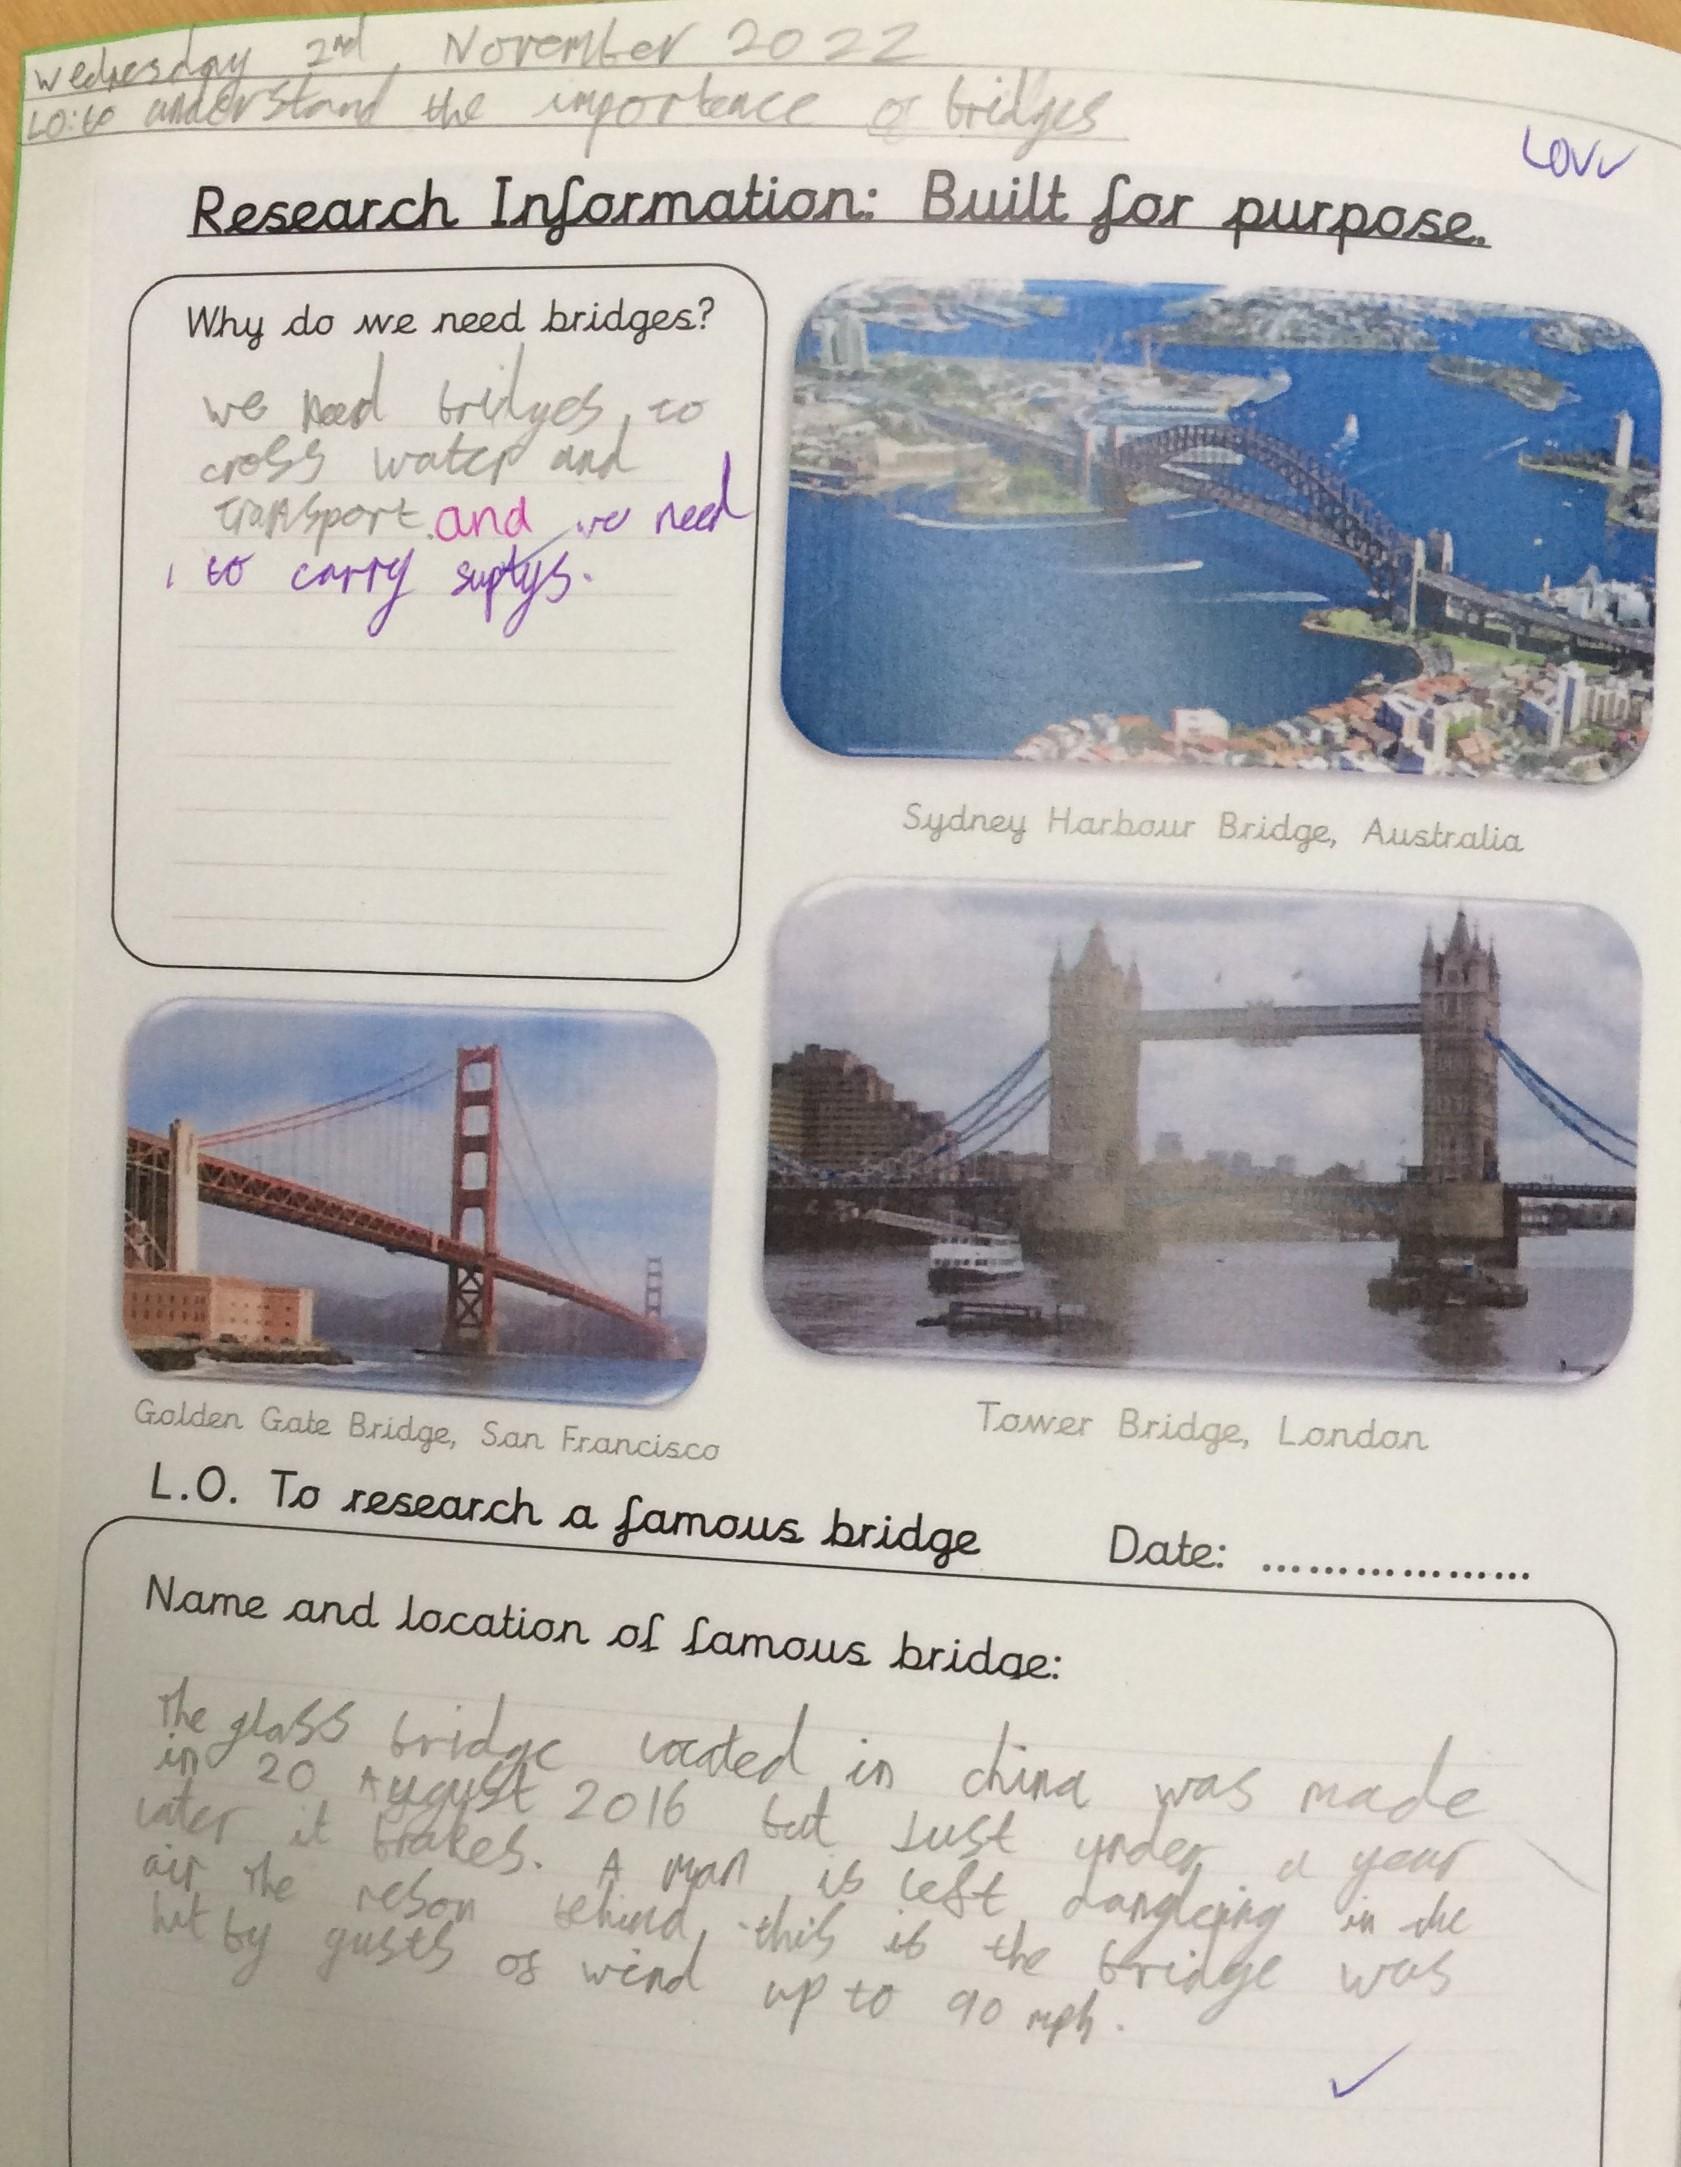 Wednesday 2nd November 2022
LO: to understand the importence of bridges
LO✓✓
Research Information: Built for purpose.
Why do we need bridges?
we need bridges to
cross water and
transport. and we need
to carry suptys.
Sydney Harbour Bridge, Australia
Golden Gate Bridge, San Francisco
Tower Bridge, London
L.O. To research a famous bridge
Date: ..................
Name and location of famous bridge:
The glass bridge located in china was made
in 20 August 2016 but Just under a year
later it brakes. A man is left dangleing in the
air The reson behind this is the bridge was
hit by gusts of wind up to 90 mph.